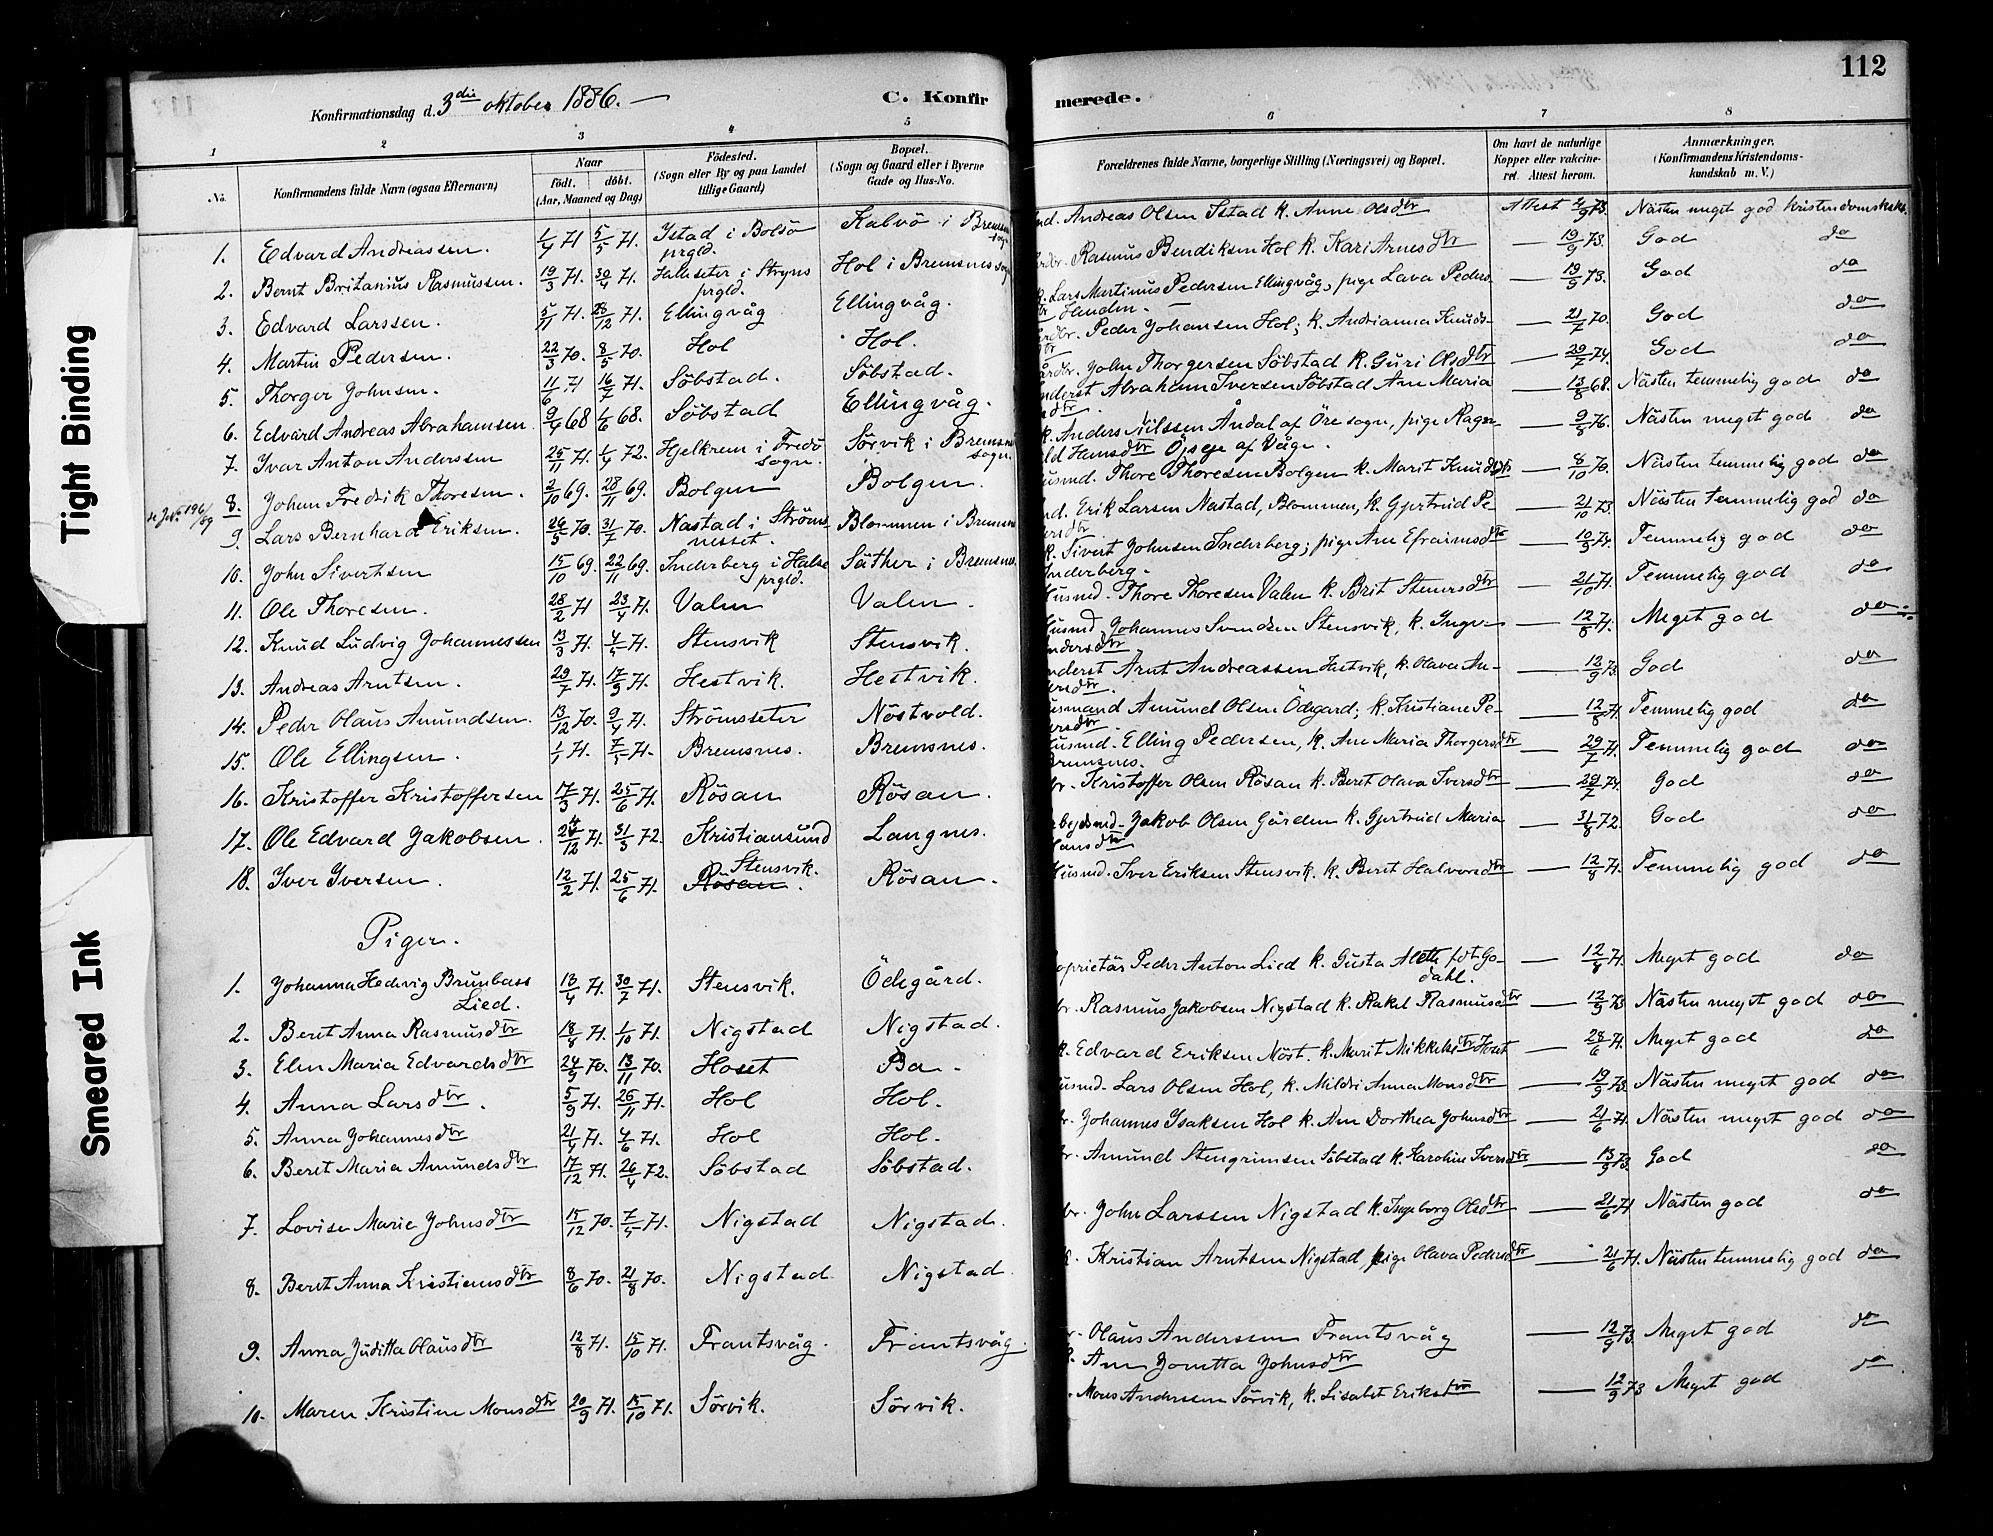 112
Konfirmationsdag d. 3die oktober 1886. —
C. Konfirmerede.
1 2 3 4 5 6 7 8
No.
Konfirmandens fulde Navn (ogsaa Efternavn)
Naar
födt. döbt.
(Aar, Maaned og Dag)
Födested.
(Sogn eller By og paa Landet
tillige Gaard)
Bopæl.
(Sogn og Gaard eller i Byerne
Gade og Hus-No.
Forældrenes fulde Navne, borgerlige Stilling (Næringsvei) og Bopæl.
Om havt de naturlige
Kopper eller vakcine-
ret. Attest herom.
Anmærkninger.
(Konfirmandens Kristendoms-
kundskab m. V.)
1. Edvard Andreassen. 1/4 71 5/5 71. Istad i Bolsö prgld. Kalvö i Bremsnes sogn Andreas Olsen Istad k. Anne Olsdtr Attest 73. Nästen meget god kristendomskdsk.
2. Bernt Britanius Rasmussen. 19/3 71. 30/4 71. Halseter i Stryns prgld. Hol i Bremsnes sogn Rasmus Bendiksen Hol k. Kari Arnesdtr — 19/9 73. God do
3. Edvard Larssen. 5/11 71. 26/12 71. Ellingvåg Ellingvåg. Lars Martinus Pedersen Ellingvåg, pige Lava Peders- dtr Handen — 19/9 73. God do
4. Martin Pedersen. 22/3 70. 8/5 70. Hol Hol. Peder Johansen Hol; k. Andrianna Knuds- dtr — 21/7 70. God do
5. Thorger Johnsen. 11/6 71 16/7 71. Söbstad. Söbstad. John Thorgersen Söbstad k. Guri Olsdtr — 29/7 74. God do
6. Edvard Andreas Abrahamsen 9/4 68 1/6 68. Söbstad Ellingvåg. Inderst Abraham Iversen Söbstad Ane Maria — 13/8 68. Nästen temmelig god do
7. Yvar Anton Anderssen 25/11 71. 1/4 72. Hjelkrem i Fredö sogn. Sörvik i Bremsnes sogn. k. Anders Nilssen Åndal af Öre sogn, pige Ragn- ild Hansdtr Öjseje af Våge. — 9/8 76. Nästen meget god do
8. Johan Fredrik Thoresen. 2/10 69. 28/11 69. Bolgen Bolgen. Husmd. Thore Thoresen Bolgen k. Marit Knudsdtr — 8/10 70. Nästen temmelig god do
196/89
9. Lars Bernhard Eriksen. 26/5 70. 31/7 70. Nastad i Ströms- nesset. Blommen i Bremsnes Erik Larsen Nastad, Blommen, k. Gjertrud Pe- dersdtr — 21/10 73. Nästen temmelig god do
10. John Sivertsen 15/10 69. 22/11 69. Inderberg i Halse prgld. Säther i Bremsnes. k. Sivert Johnsen Inderberg; pige Ane Efraimsdtr Inderberg. — 10/9 74. Temmelig god do
11. Ole Thoresen. 28/2 71 23/4 71. Valen Valen. Husmd. Thore Thoresen Valen k. Brit Stenersdtr — 21/10 71. Temmelig god do
12. Knud Ludvig Johannessen 13/3 71. 71. Stensvik Stensvik. Husmd. Johannes Svendsen Stensvik, k. Inge- — 12/8 71. Meget god do
13. Andreas Arntsen. 29/7 71. 17/9 71. Hestvik. Hestvik. Inderst Arnt Andreassen Hestvik, k. Olava An- dersdtr. — 12/9 73. God do
14. Peder Olaus Amundsen. 13/12 70. 9/4 71. Strömsseter Nöstvold. Husmand Amund Olsen Ödegard; k. Kristiane Pe- dersdtr — 12/8 71. Temmelig god do
15. Ole Ellingsen. 71. 71. Bremsnes. Bremsnes. Husmd. Elling Pedersen, k. Ane Maria Thorgersdtr Bremsnes. — 29/7 71. Temmelig god do
16. Kristoffer Kristoffersen 17/3 71. 25/6 71. Rösan Rösan. Kristoffer Olsen Rösan k. Beret Olava Iversdtr — 29/7 74. God do
17. Ole Edvard Jakobsen. 71. 31/3 72. Kristiansund Langnes. Arbejdsmd. Jakob Olsen Gården k. Gjertrud Maria — 31/8 72. God do
18. Yver Yversen. 12/2 71. 25/6 71. Rösan. Stensvik. Rösan. Husmd. Iver Eriksen Stensvik. k. Beret Halvorsdtr — 12/8 71. Temmelig god do
Piger.
1. Johanna Hedevig Brunbass Lied. 13/4 71. 30/7 71. Stensvik. Ödegård. Proprietär Peder Anton Lied k. Gusta Aleth fdt Go- dahl. — 12/8 71. Meget god do
2. Beret Anna Rasmusdtr 18/8 71. 1/10 71. Nigstad Nigstad. Rasmus Jakobsen Nigstad k. Rakel Rasmusdtr — 12/9 73 Nästen meget god do
3. Elen Maria Edvardsdtr 24/9 70. 13/11 70. Hoset Ba. k. Edvard Eriksen Nöst. k. Marit Mikkelsdtr Hoset — 28/6 71. Meget god do
4. Anna Larsdtr. 5/9 71. 26/11 71. Hol Hol. Husmd. Lars Olsen Hol, k. Mildri Anna Monsdtr — 19/9 73. Nästen meget god do
5. Anna Johannesdtr 21/4 71. 4/6 71. Hol Hol. Johannes Isaksen Hol k. Ane Dorthea Johnsdtr — 21/6 71. Nästen meget god do
6. Beret Maria Amundsdtr 17/12 71. 26/4 72. Söbstad Söbstad. Amund Stengrimsen Söbstad k. Karoline Iversdtr — 13/9 73. God do
7. Lovise Marie Johnsdtr 15/12 70. 71. Nigstad Nigstad. John Larssen Nigstad k. Ingeborg Olsdtr — 21/6 71 Nästen god do
8. Beret Anna Kristiansdtr 8/6 70. 21/8 70. Nigstad Nigstad. Kristian Arntsen Nigstad, pige Olava Pedersdtr — 21/6 71. Nästen temmelig god do
9. Anna Juditta Olausdtr 12/8 71. 15/10 71. Frantsvåg. Frantsvåg. Olaus Anderssen Frantsvåg k. Ane Jonetta Johnsdtr — 12/9 73. Meget god do
10. Maren Kristine Monsdtr 20/9 71. 15/10 71. Sörvik. Sörvik. Mons Anderssen Sörvik, k. Lisabet Eriksdtr — 12/9 73 Meget god do
Tight Binding
Smeared Ink